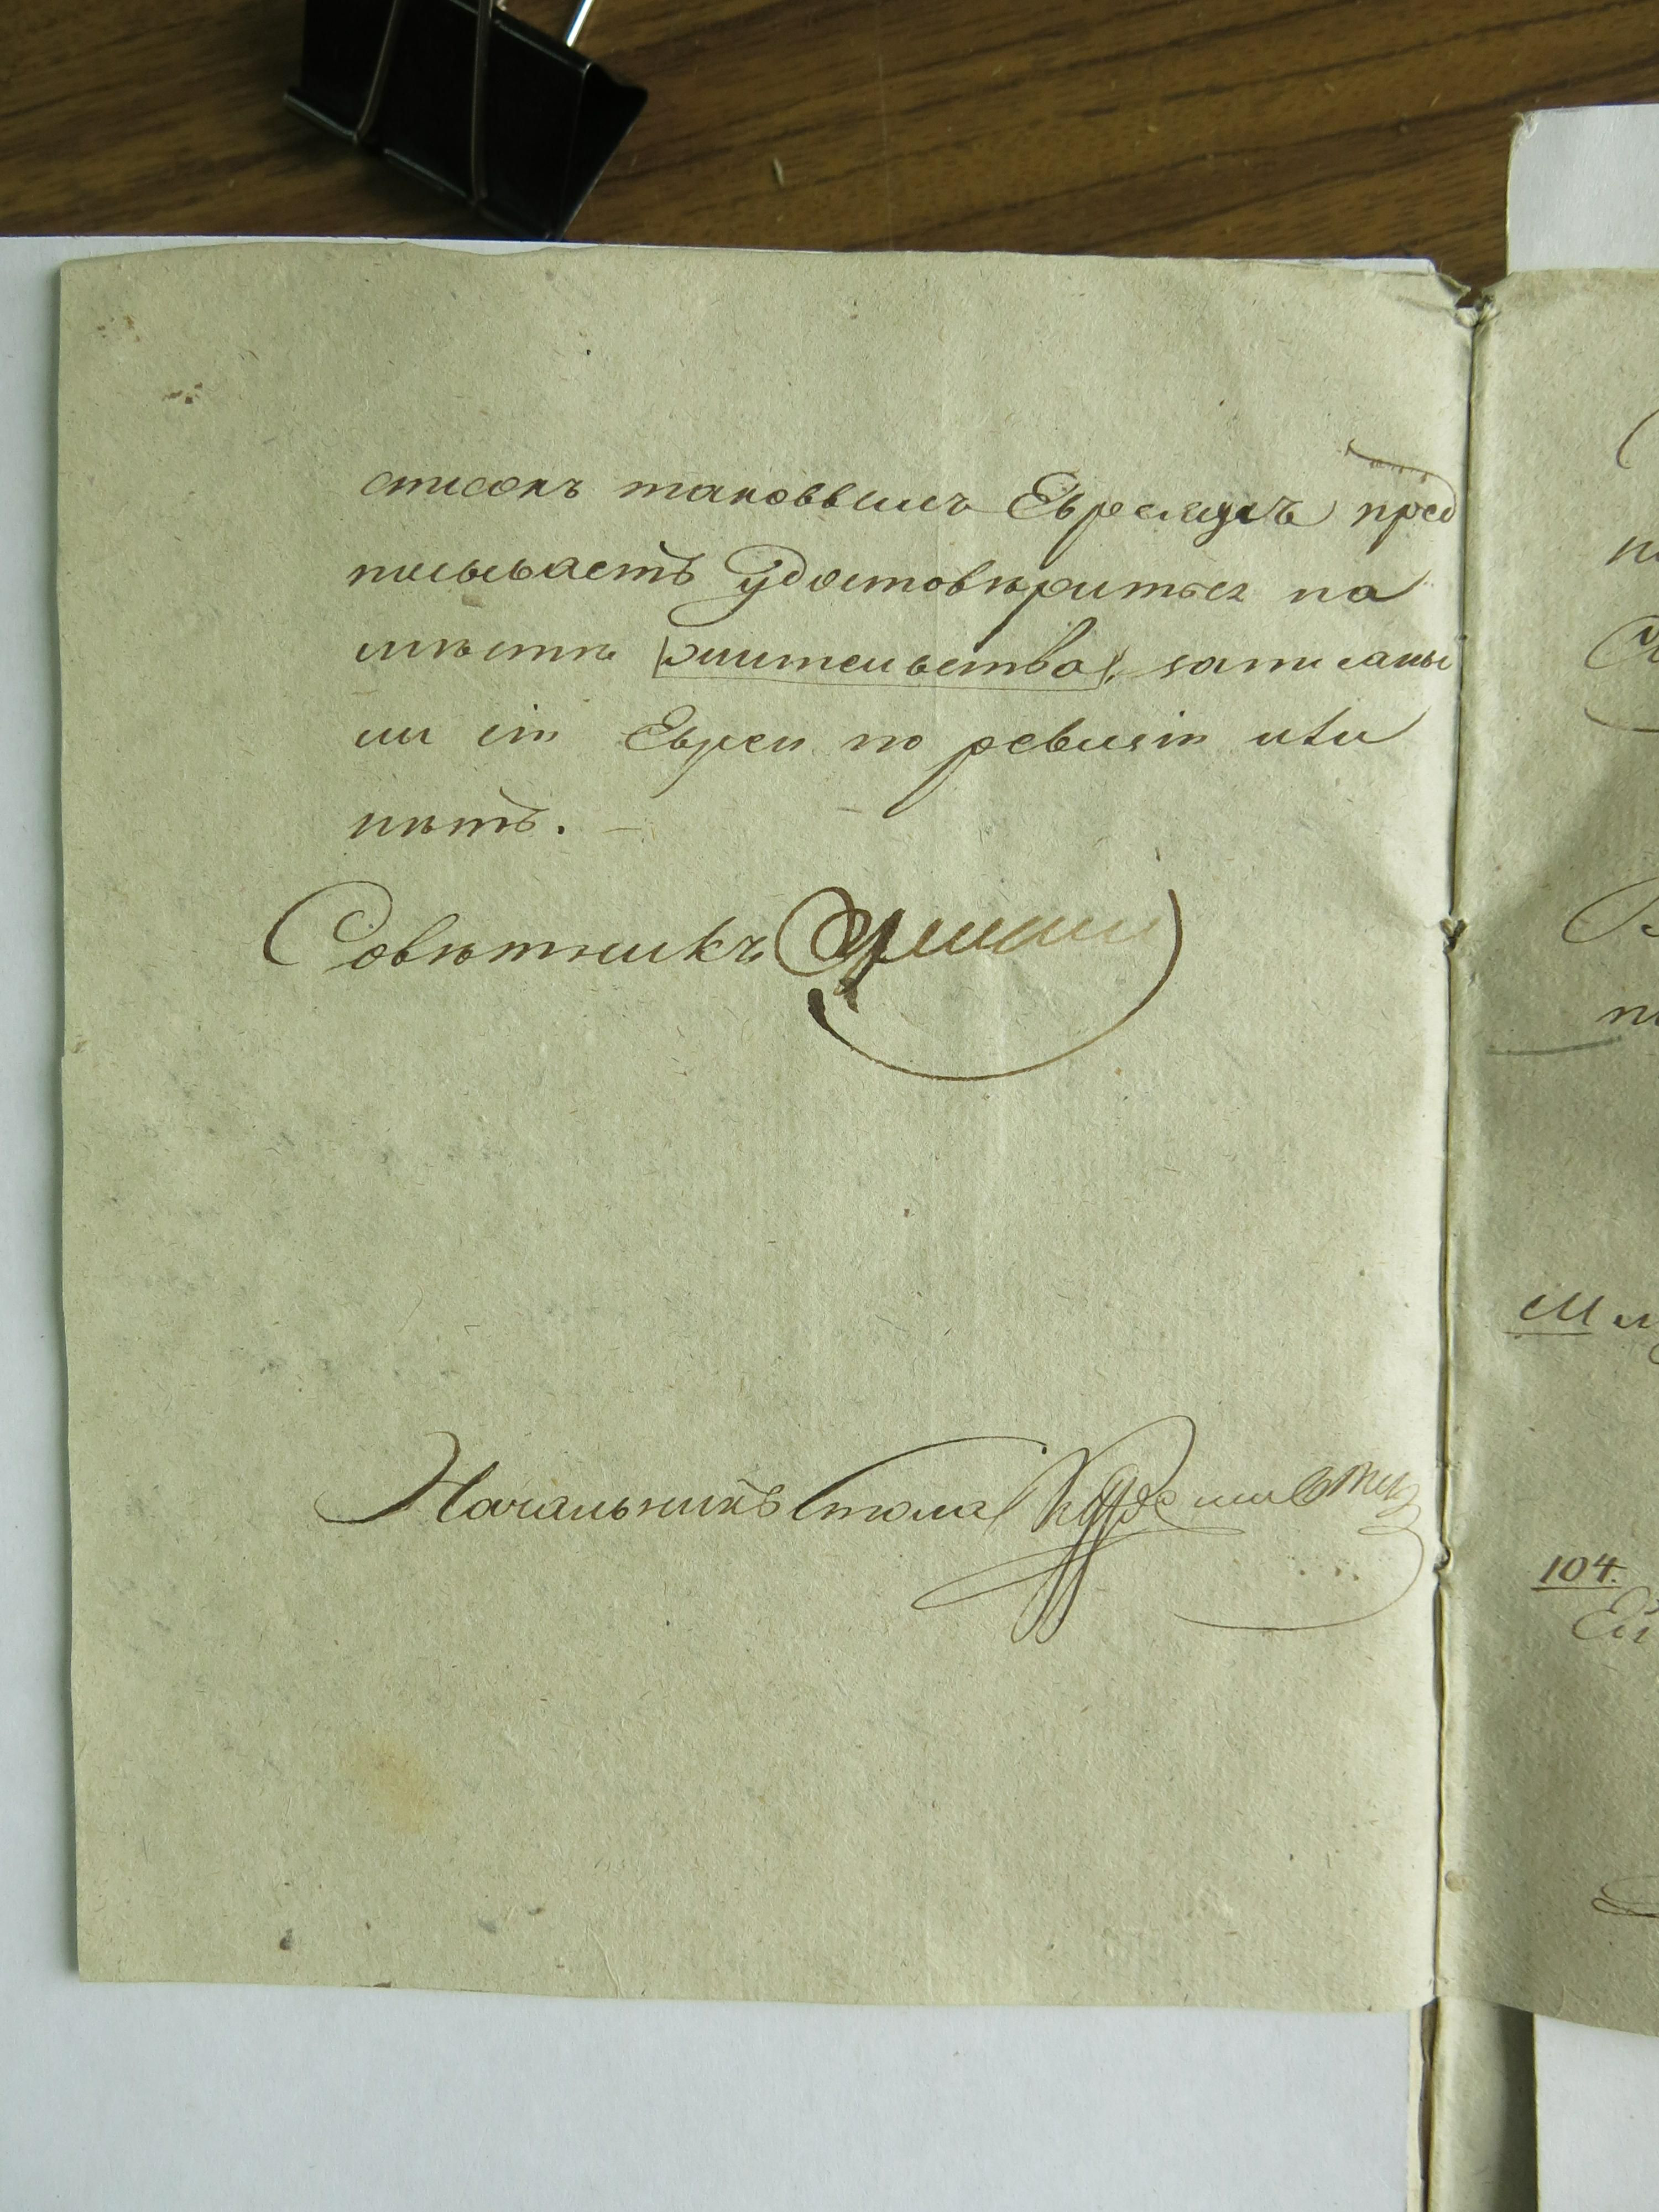 списокъ таковымъ Евреямъ пред
писываетъ удостовѣриться на
мѣстѣ жительства, записаны
ли сіи Евреи по ревизіи или
нѣтъ.
Совѣтникъ
Начальникъ Стола
104.